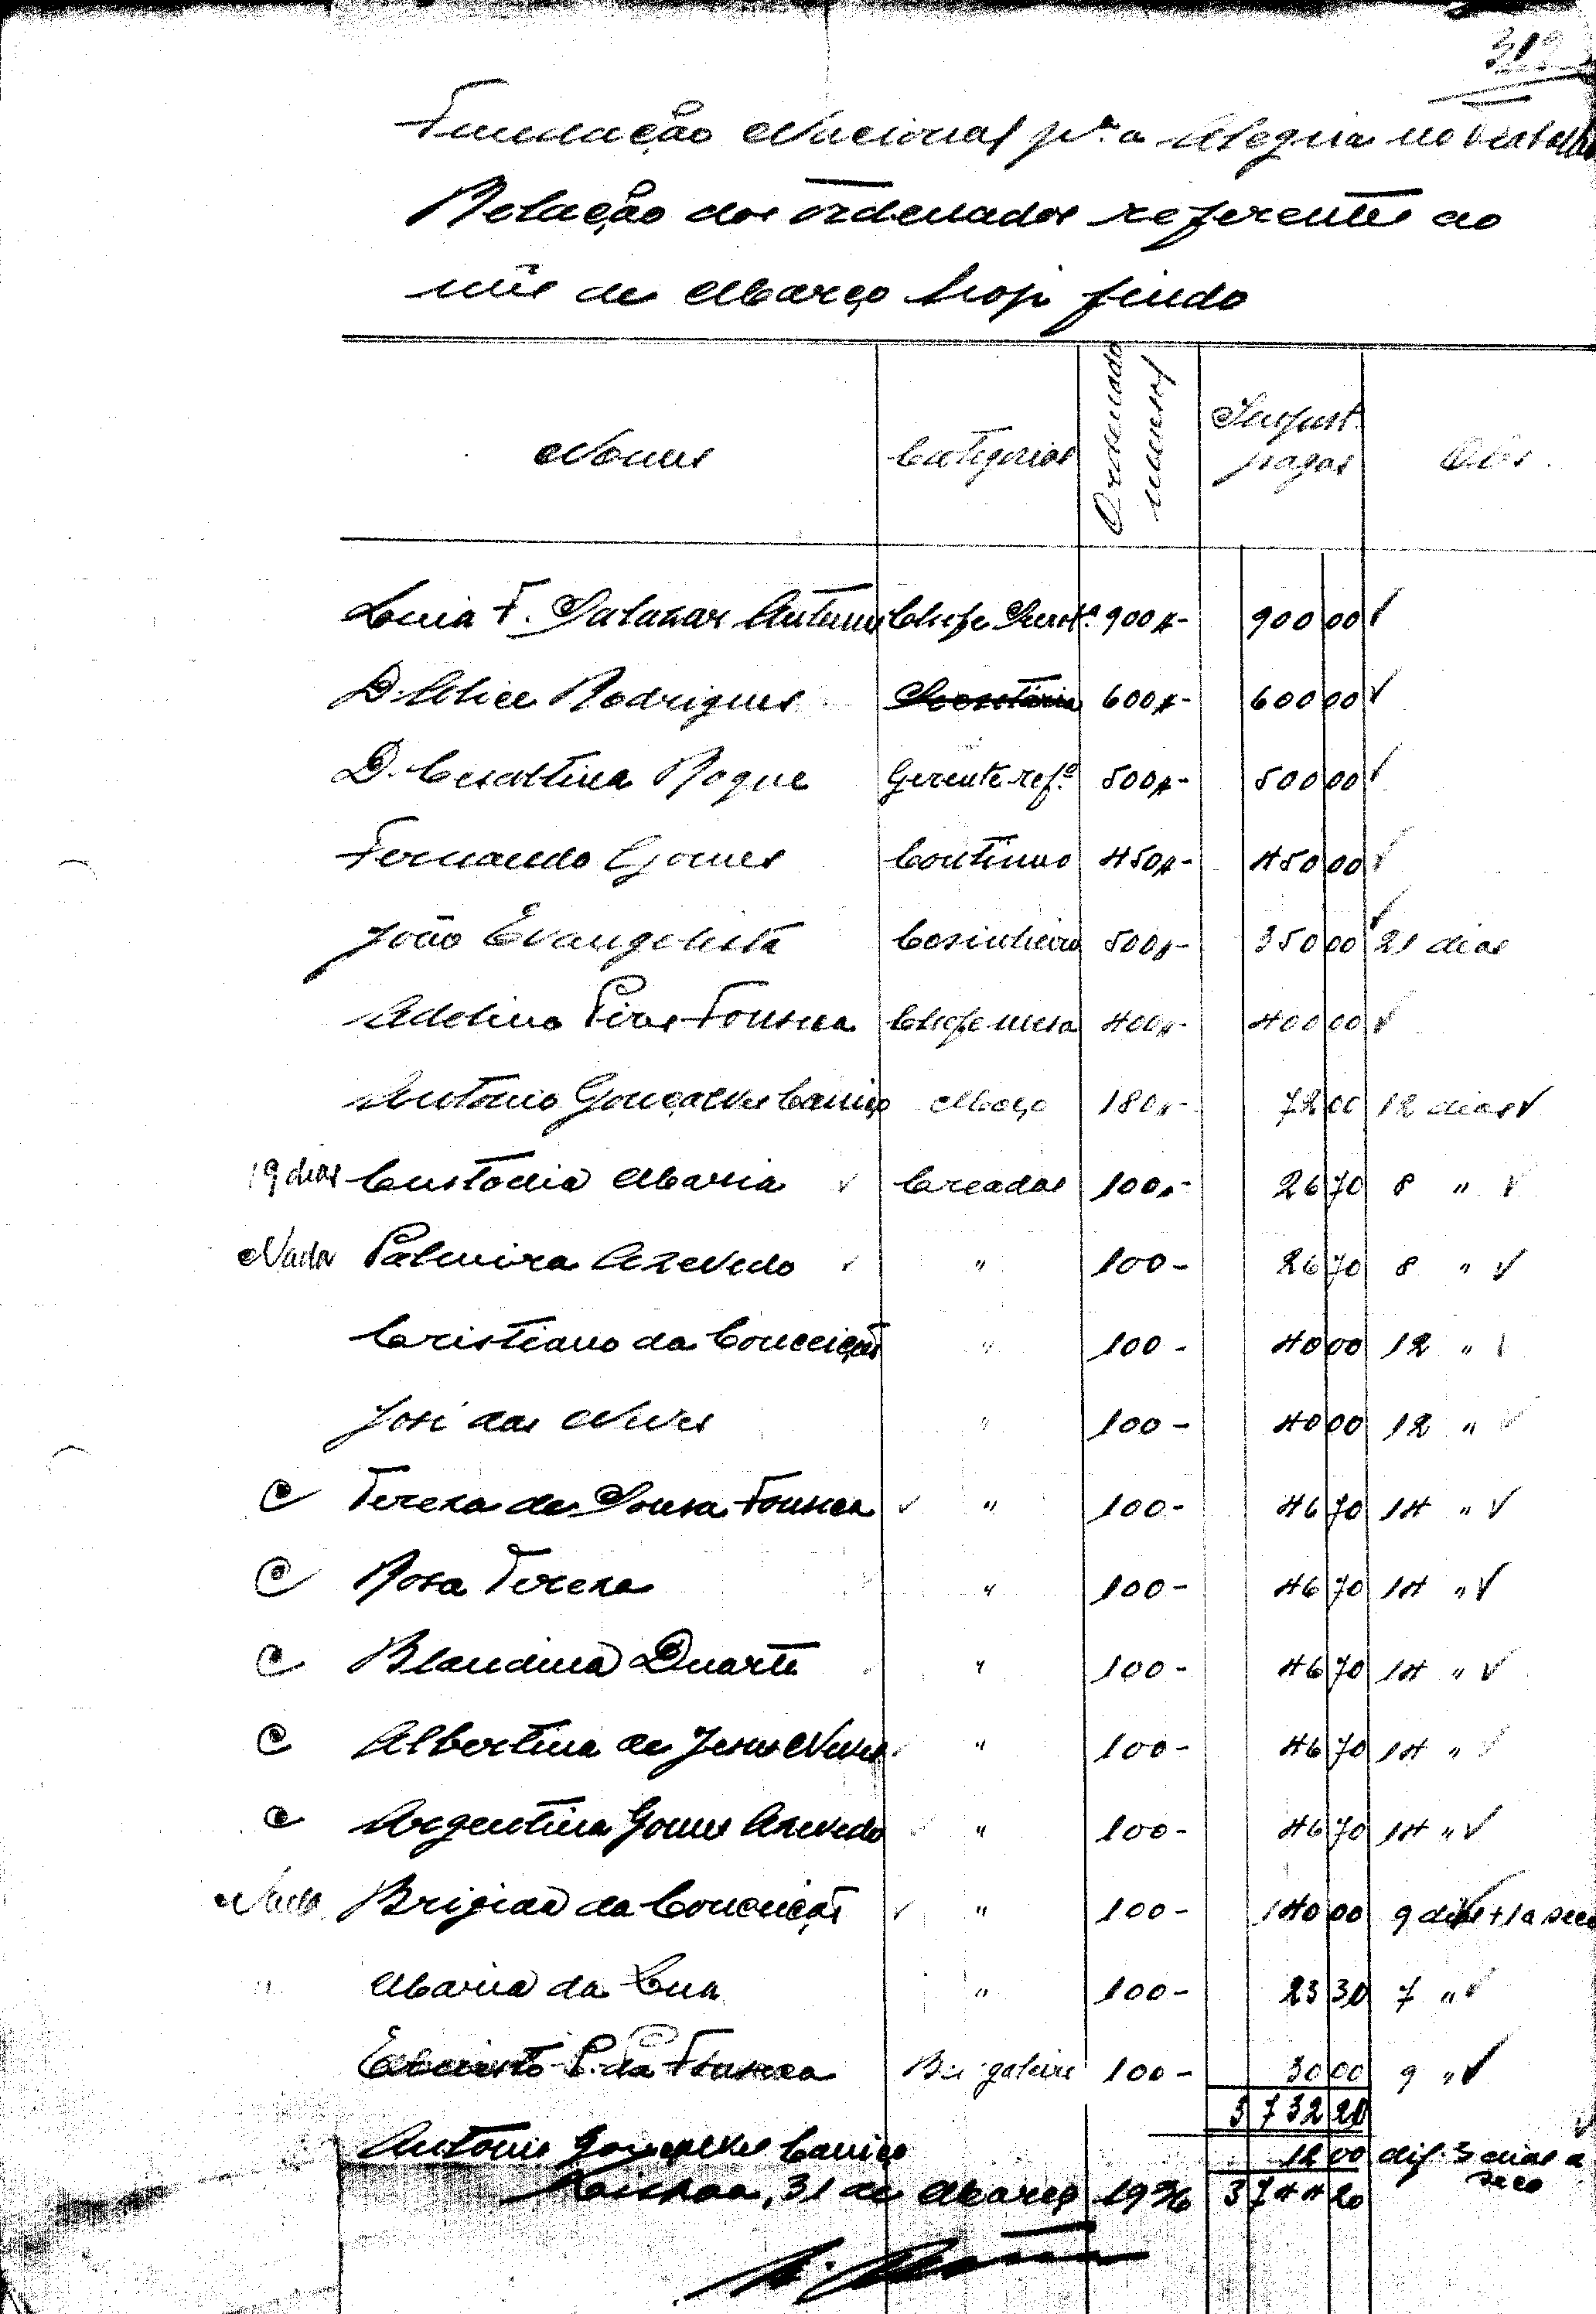 Fundação Nacional pª a Alegria no Trabalho
Relação dos ordenados referentes ao
mês de Março hoje findo
Nomes Categorias Ordenado mensal Import. pagas Obs.
Luia F. Salazar Antunes Chefe Secret.ª 900$- 900 00 ✓
D. Alice Rodrigues 600$- 600 00 ✓
D. Cesaltina Roque Gerente refº 500$- 500 00 ✓
Fernando Gomes Continuo 450$- 450 00 ✓
João Evangelista Cosinheiro 500$- 350 00 ✓ 21 dias
Adelino Pires Fonseca Chefe mesa 400$- 400 00 ✓
Antonio Gonçalves Carriço Moço 180$- 72 00 12 dias ✓
19 dias Custodia Maria ✓ Creadas 100$- 26 70 8 " ✓
Nada Palmira Azevedo ✓ " 100- 26 70 8 " ✓
Cristiano da Conceição " 100- 40 00 12 " ✓
José das Neves " 100- 40 00 12 " ✓
C Tereza de Sousa Fonseca ✓ " 100- 46 70 14 " ✓
C Rosa Tereza " 100- 46 70 14 " ✓
C Blandina Duarte " 100- 46 70 14 " ✓
C Albertina de Jesus Neves ✓ " 100- 46 70 14 " ✓
C Argentina Gomes Azevedo ✓ " 100- 46 70 14 " ✓
Nada Brigida da Conceição ✓ " 100- 140 00 9 dias + 1 a seco
" Maria da Cun " 100- 23 30 7 " ✓
P. da Fonseca 100- 30 00 9 " ✓
3 732 20
Antonio Gonçalves Carriço 12 00 dif. 3 dias a seco
31 de Março 1936 3 744 20